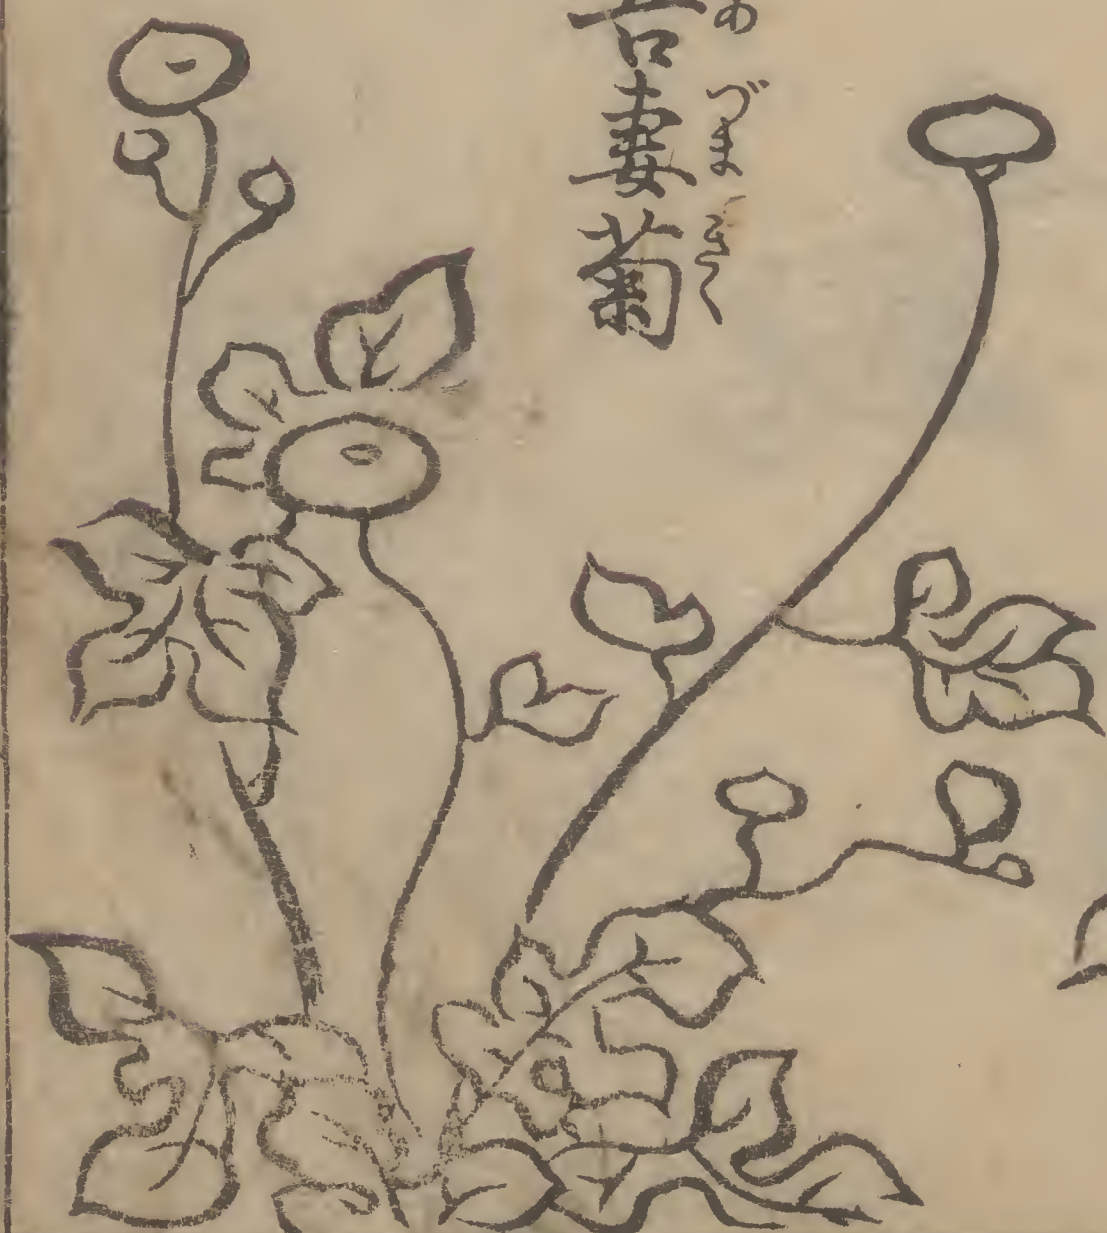 吾妻菊
あづまぎく